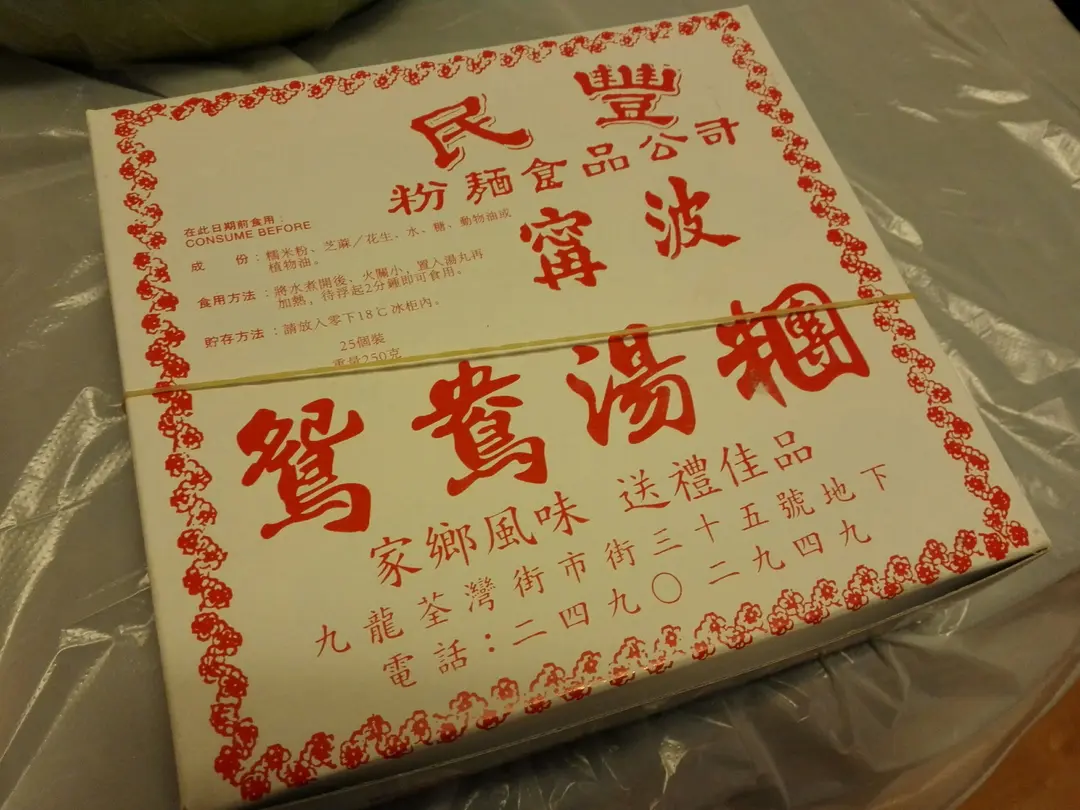 民豐
粉麵食品公司
在此日期前食用：
CONSUME BEFORE
成　份：糯米粉、芝蔴／花生、水、糖、動物油或
植物油。
食用方法：將水煮開後，火關小，置入湯丸再
加熱，待浮起2分鐘即可食用。
貯存方法：請放入零下18℃冰柜內。
25個裝
重量250克
寗波
鴛鴦湯糰
家鄉風味 送禮佳品
九龍荃灣街市街三十五號地下
電話：二四九〇二九四九